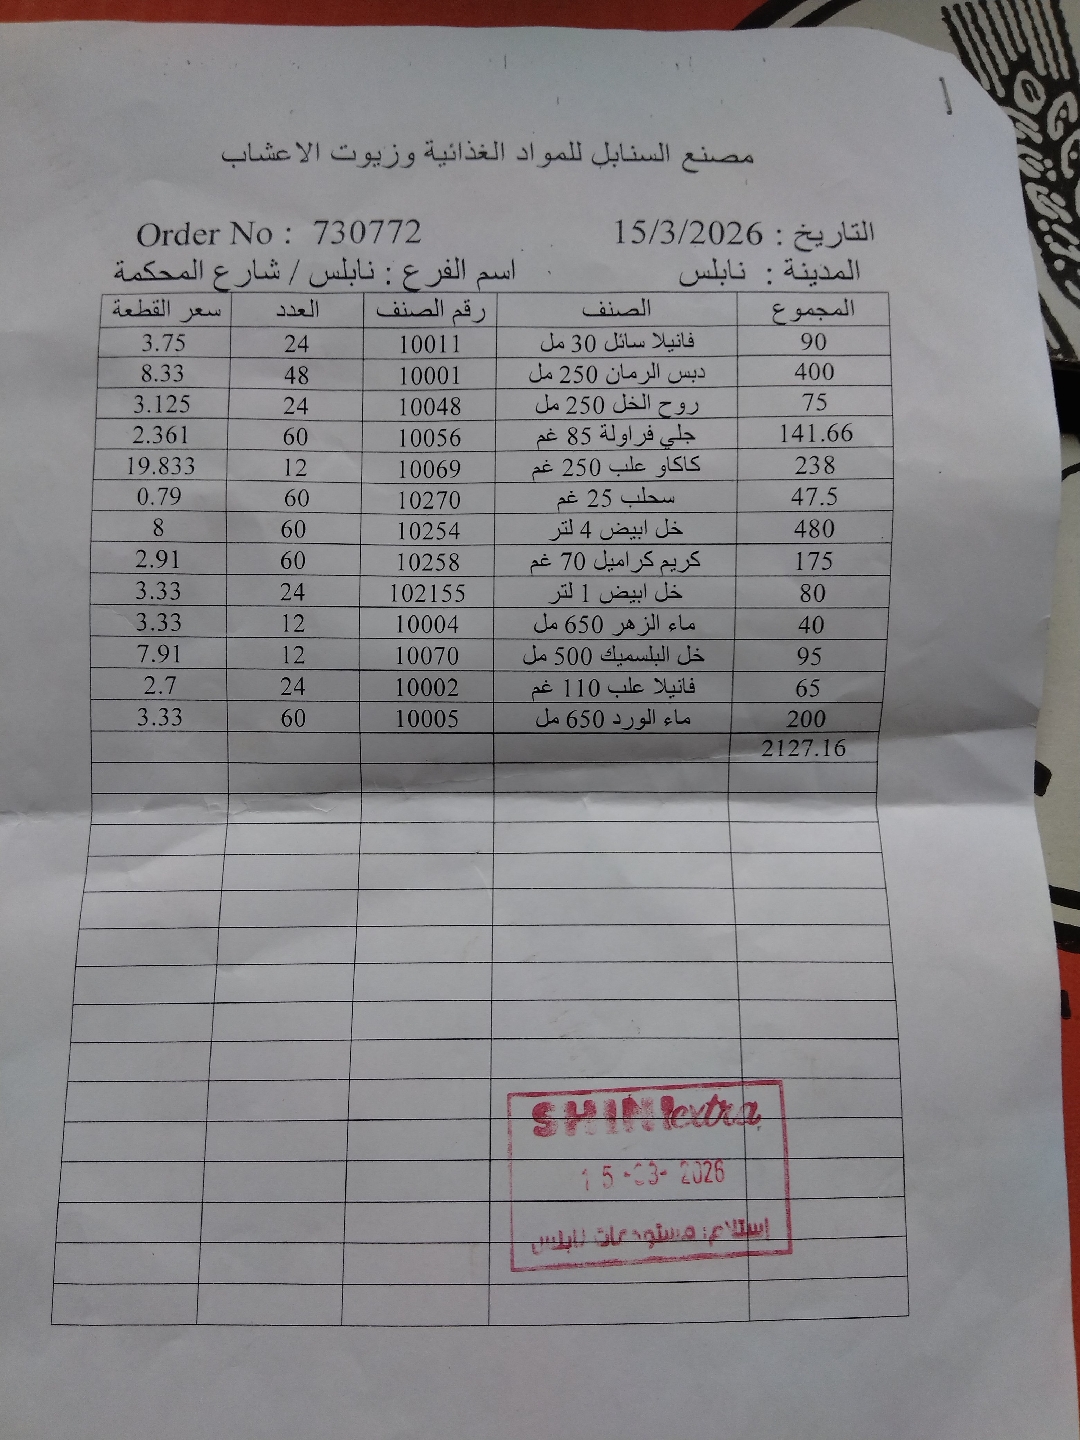 مصنع السنابل للمواد الغذائية وزيوت الاعشاب
التاريخ : 15/3/2026 Order No : 730772
المدينة : نابلس اسم الفرع : نابلس / شارع المحكمة
المجموع الصنف رقم الصنف العدد سعر القطعة
90 فانيلا سائل 30 مل 10011 24 3.75
400 دبس الرمان 250 مل 10001 48 8.33
75 روح الخل 250 مل 10048 24 3.125
141.66 جلي فراولة 85 غم 10056 60 2.361
238 كاكاو علب 250 غم 10069 12 19.833
47.5 سحلب 25 غم 10270 60 0.79
480 خل ابيض 4 لتر 10254 60 8
175 كريم كراميل 70 غم 10258 60 2.91
80 خل ابيض 1 لتر 102155 24 3.33
40 ماء الزهر 650 مل 10004 12 3.33
95 خل البلسميك 500 مل 10070 12 7.91
65 فانيلا علب 110 غم 10002 24 2.7
200 ماء الورد 650 مل 10005 60 3.33
2127.16
SHINI extra
15-03-2026
إستلام مستودعات نابلس